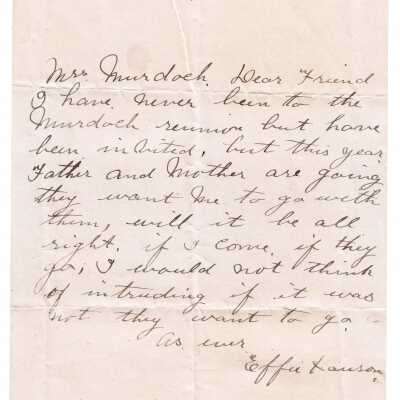 Mrs. Murdoch. Dear Friend
I have never been to the
Murdoch reunion but have
been invited, but this year
Father and Mother are going
they want me to go with
them, will it be all
right. if I come if they
go, I would not think
of intruding if it was
not they want to go.
As ever
Effie